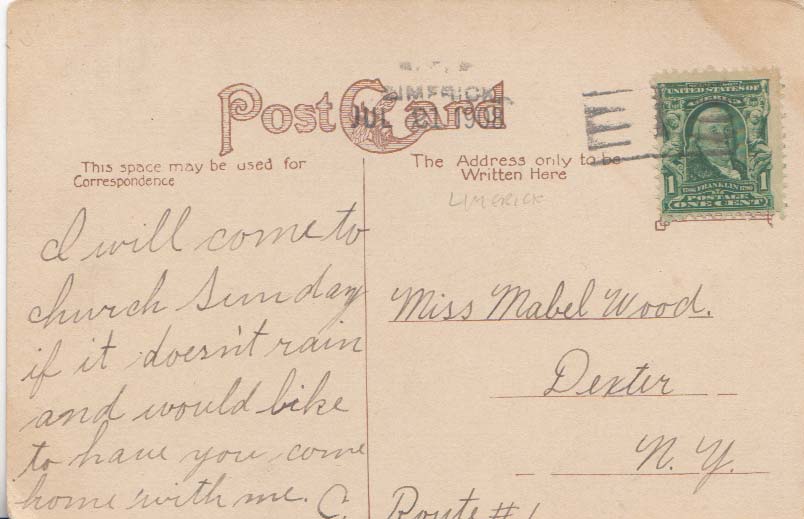 Post Card
LIMERICK
JUL 21 1908
UNITED STATES OF
AMERICA
1 1
FRANKLIN
POSTAGE
ONE CENT
This space may be used for
Correspondence
The Address only to be
Written Here
LIMERICK
I will come to
church Sunday
if it doesn't rain
and would like
to have you come
home with me. C.
Miss Mabel Wood.
Dexter
N. Y.
Route #1